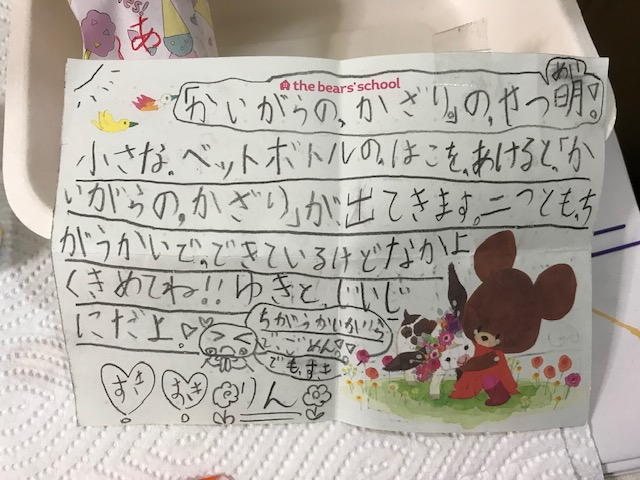 es!
あ
the bears' school
「かいがらの,かざり」の,せつ明!
めい
小さな,ペットボトルの,はこを,あけると,「か
いがらの,かざり」が,出てきます。二つとも,ち
がうかいで,できているけどなかよ
くきめてね!!ゆきと,じいじ
にだよ。
ちがうかいかいら
でごめん!
でも,すき
すき
すき
りん